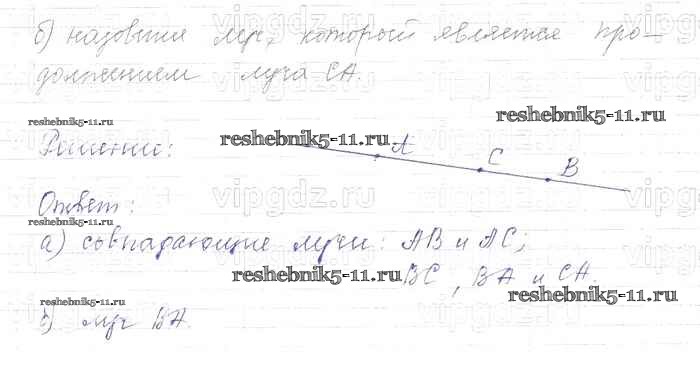 б) назовите луч, который является про-
должением луча CA.
reshebnik5-11.ru
reshebnik5-11.ru
reshebnik5-11.ru
Решение:
A
C
B
Ответ:
reshebnik5-11.ru
а) совпадающие лучи: AB и AC;
BC, BA и CA.
reshebnik5-11.ru
reshebnik5-11.ru
reshebnik5-11.ru
б) луч BA.
vipgdz.ru